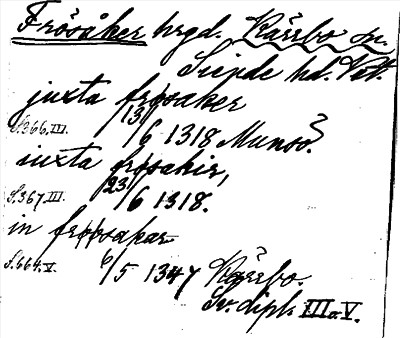 Frösåker hrgd. Kärrbo sn.
Siende hd. Vstl.
juxta frøsaker
S. 366. III. 13/6 1318 Munsö?
iuxta frøsakir,
S. 367 III. 23/6 1318.
in frøøsakar
S. 664. V. 6/5 1347 Kärrbo.
Sv. dipl. III o. V.